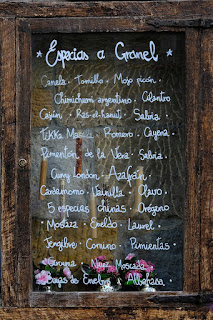 * Especias a Granel *
Canela · Tomillo · Mojo picón ·
Chimichurri argentino · Cilantro
Cajún · Ras-el-hanut · Salvia ·
Tikka Masala · Romero · Cayena ·
Pimentón de la Vera · Salvia ·
Curry London · Azafrán
Cardamomo · Vainilla · Clavo ·
5 especias chinas · Orégano
Mostaza · Eneldo · Laurel ·
Jengibre · Comino · Pimientas ·
Cúrcuma · Nuez Moscada ·
Bayas de Enebro · Albahaca ·